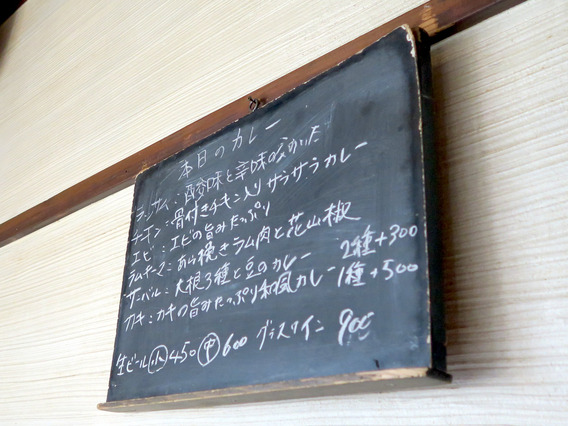 本日のカレー
ラッサム：酸味と辛味
チキン：骨付きチキン入りサラサラカレー
エビ：エビの旨みたっぷり
ラムキーマ：あら挽きラム肉と花山椒
サンバル：大根3種と豆のカレー 2種+300
カキ：カキの旨みたっぷり和風カレー 1種+500
生ビール 小 450 中 600 グラスワイン 900